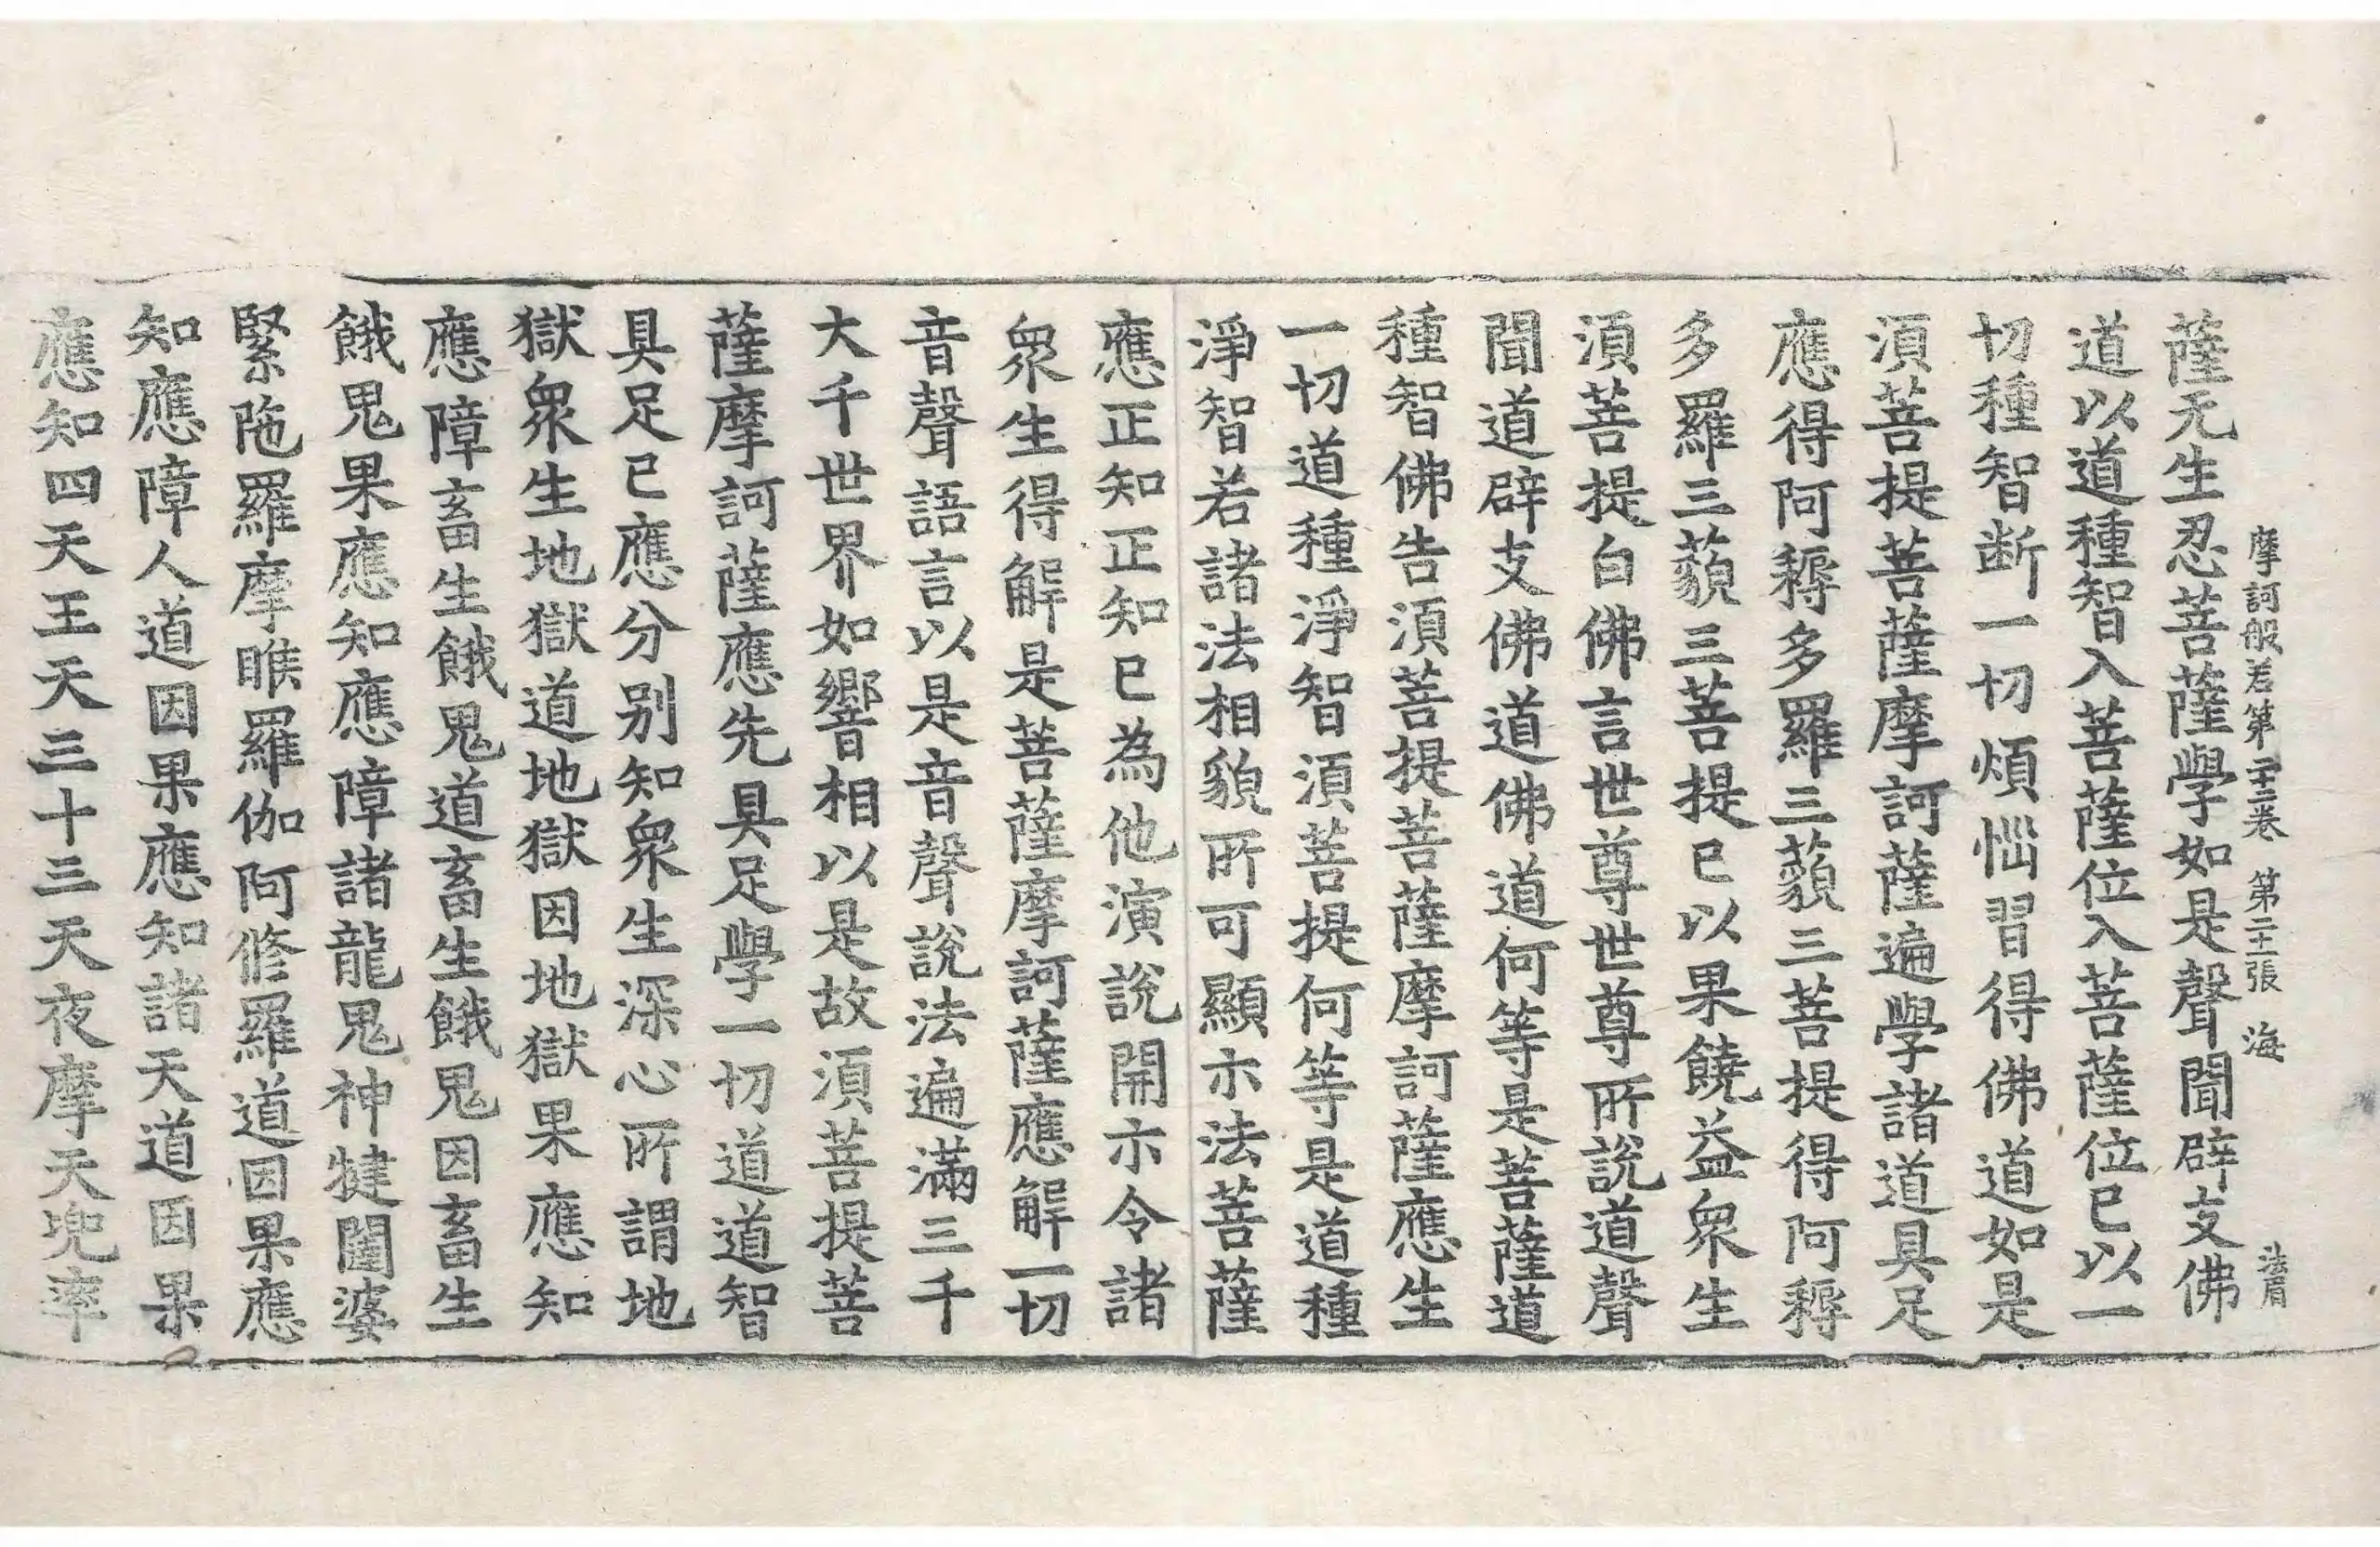 摩訶般若第二十二卷 第二十張 海 法眉
薩无生忍菩薩學如是聲聞辟支佛
道以道種智入菩薩位入菩薩位已以一
切種智断一切煩惱習得佛道如是
湏菩提菩薩摩訶薩遍學諸道具足
應得阿耨多羅三藐三菩提得阿耨
多羅三藐三菩提已以果饒益衆生
湏菩提白佛言世尊世尊所說道聲
聞道辟支佛道佛道何等是菩薩道
種智佛告湏菩提菩薩摩訶薩應生
一切道種淨智湏菩提何等是道種
淨智若諸法相貌所可顯示法菩薩
應正知正知已為他演說開示令諸
衆生得解是菩薩摩訶薩應解一切
音聲語言以是音聲說法遍滿三千
大千世界如響相以是故湏菩提菩
薩摩訶薩應先具足學一切道道智
具足已應分别知衆生深心所謂地
獄衆生地獄道地獄因地獄果應知
應障畜生餓鬼道畜生餓鬼因畜生
餓鬼果應知應障諸龍鬼神揵闥婆
緊陁羅摩睺羅伽阿修羅道因果應
知應障人道因果應知諸天道因果
應知四天王天三十三天夜摩天兜率